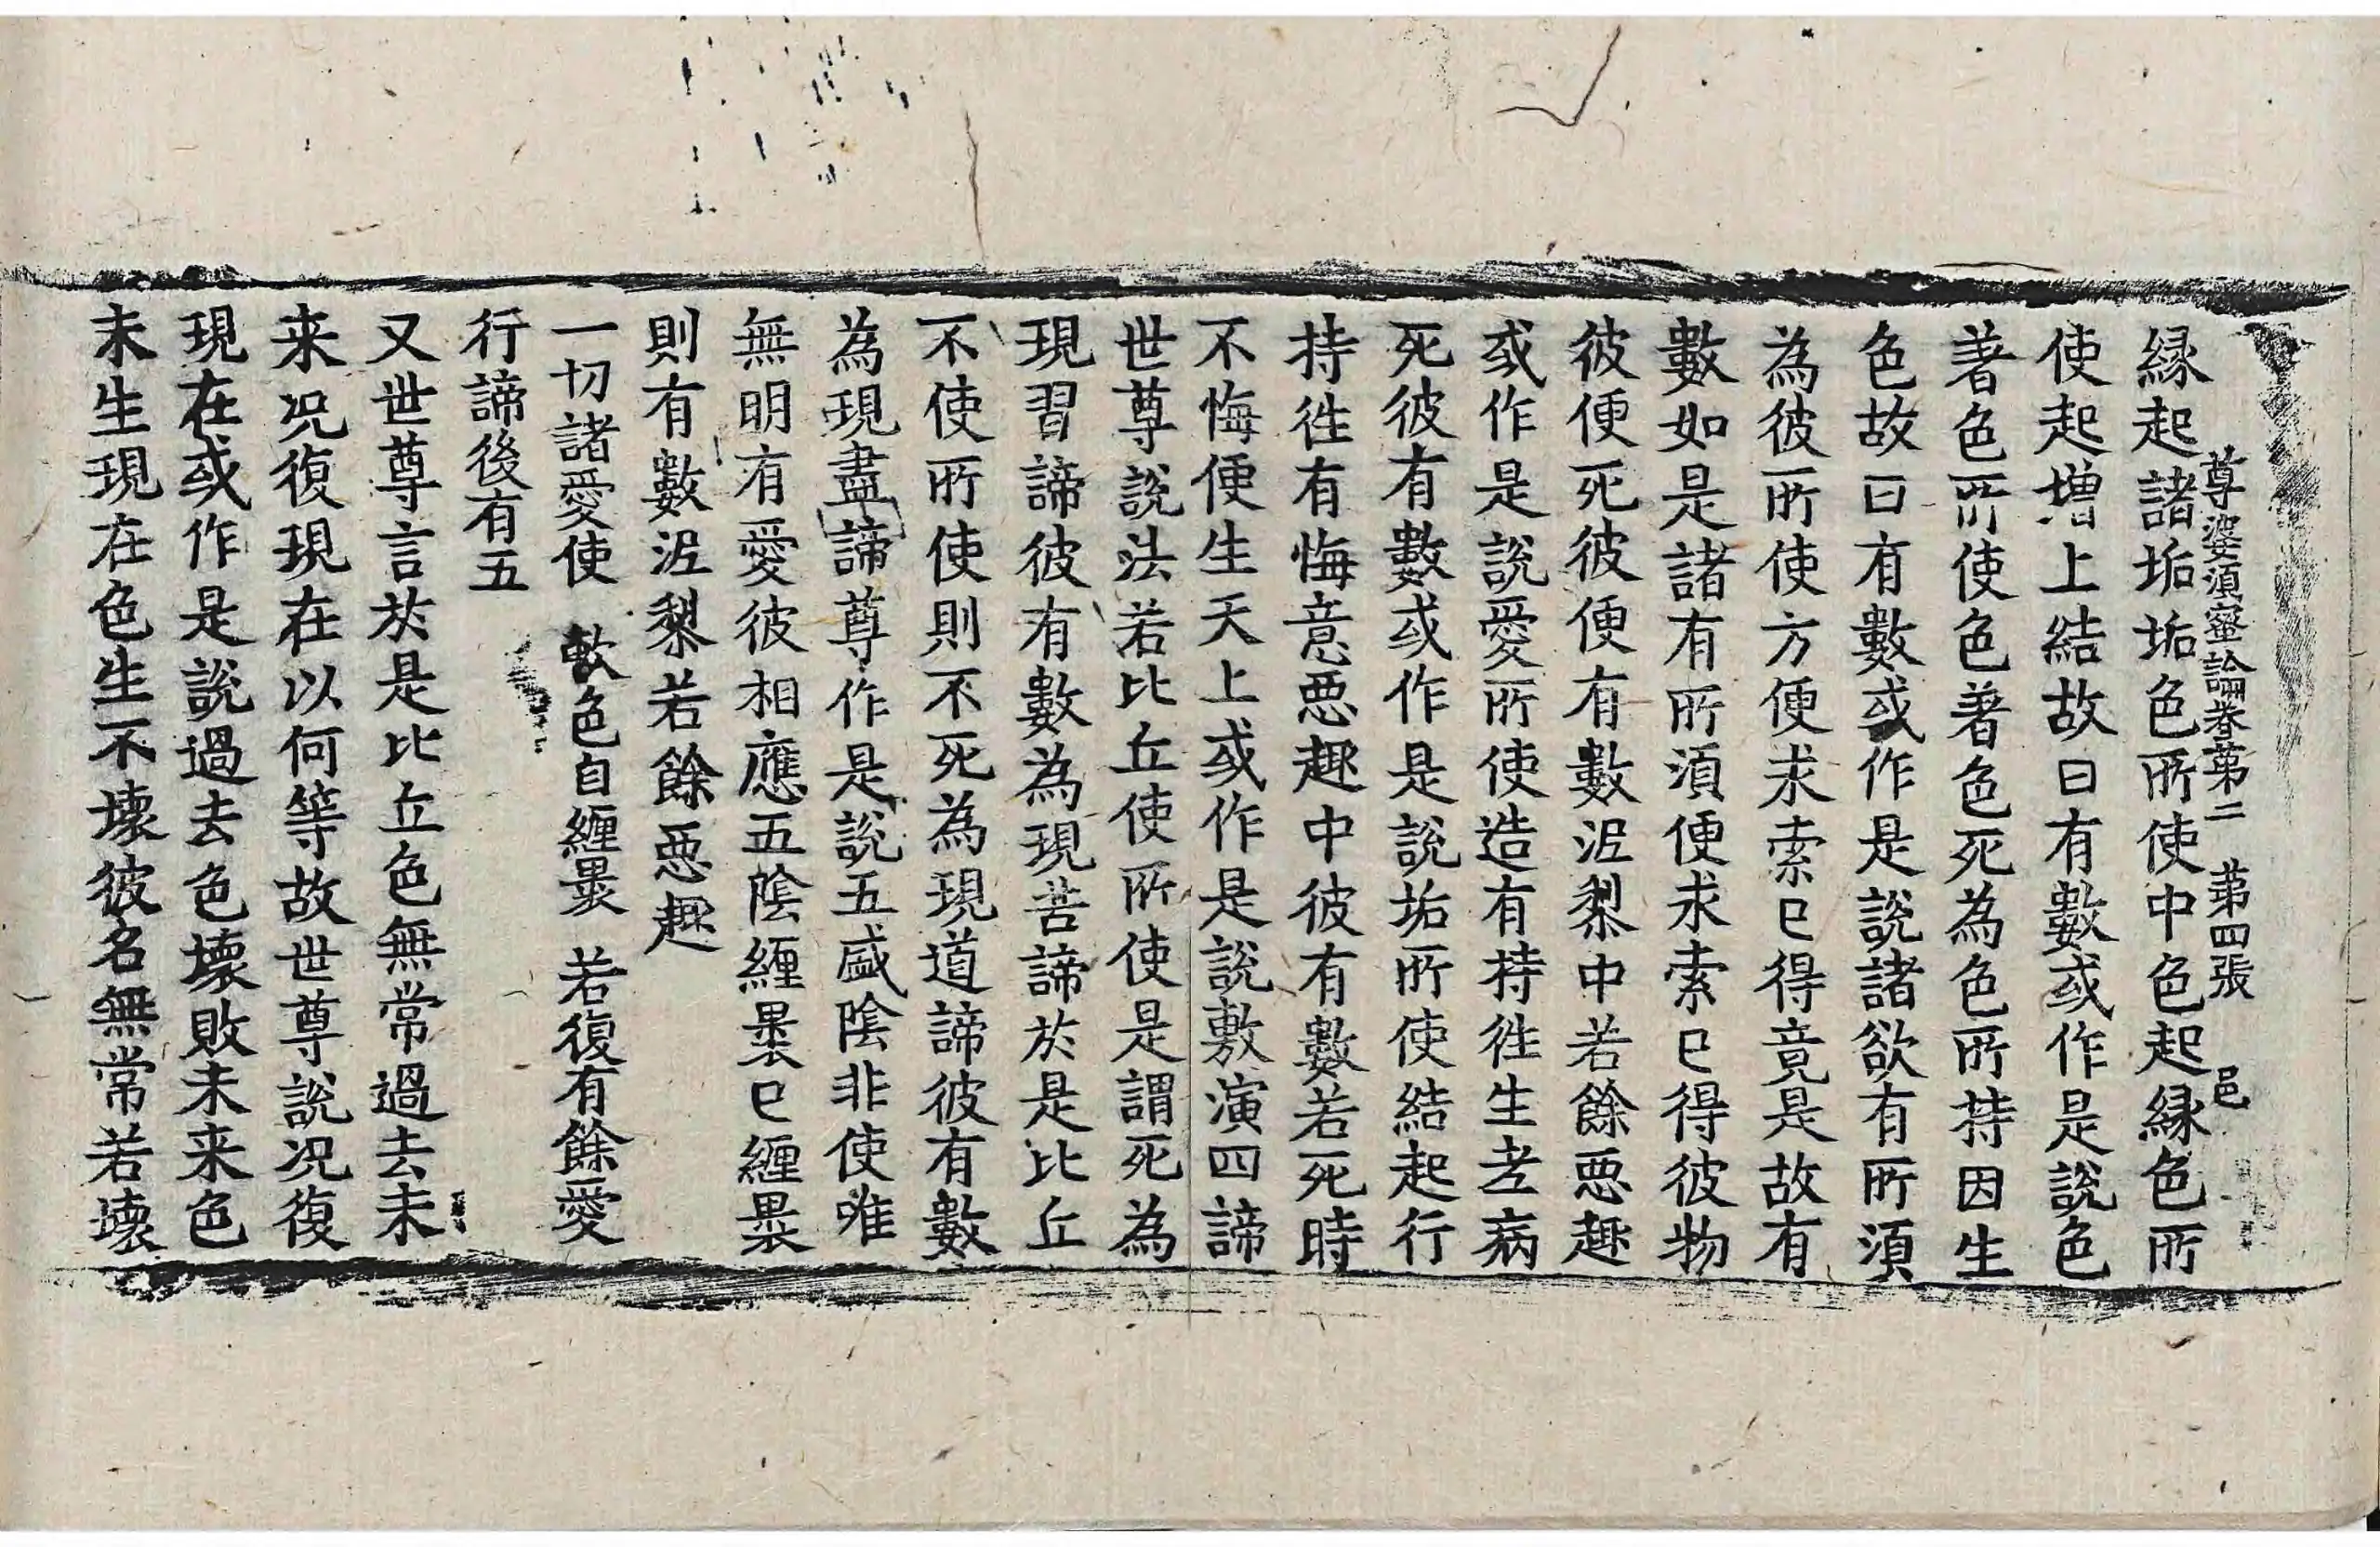 尊婆須蜜論卷第二　第四張　邑
縁起諸垢垢色所使中色起縁色所
使起增上結故曰有數或作是說色
著色所使色著色死為色所持因生
色故曰有數或作是說諸欲有所須
為彼所使方便求索已得竟是故有
數如是諸有所須便求索已得彼物
彼便死彼便有數泥梨中若餘惡趣
或作是說愛所使造有持徃生老病
死彼有數或作是說垢所使結起行
持徃有悔意惡趣中彼有數若死時
不悔便生天上或作是說敷演四諦
世尊說法若比丘使所使是謂死為
現習諦彼有數為現苦諦於是比丘
不使所使則不死為現道諦彼有數
為現盡諦尊作是說五盛陰非使唯
無明有愛彼相應五陰纏裹已纏裹
則有數泥梨若餘惡趣
一切諸愛使　軟色自纏裹　若復有餘愛
行諦後有五
又世尊言於是比丘色無常過去未
来况復現在以何等故世尊說况復
現在或作是說過去色壞敗未来色
未生現在色生不壞彼名無常若壞